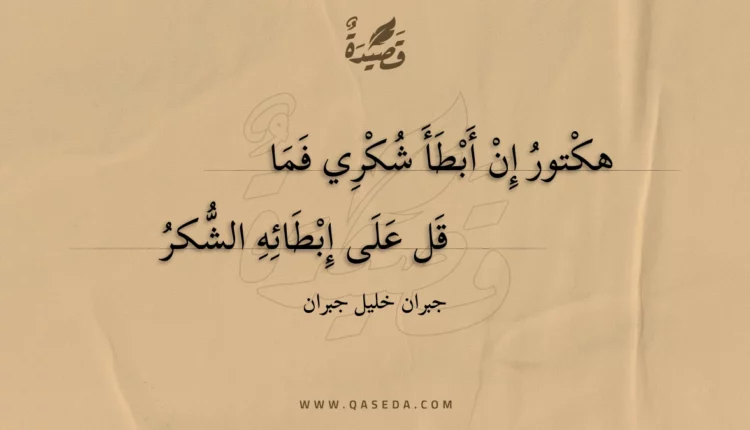 قَصِيدَةٌ
هكْتورُ إِنْ أَبْطَأَ شُكْرِي فَمَا
قَل عَلَى إِبْطَائِهِ الشُّكرُ
جبران خليل جبران
WWW.QASEDA.COM